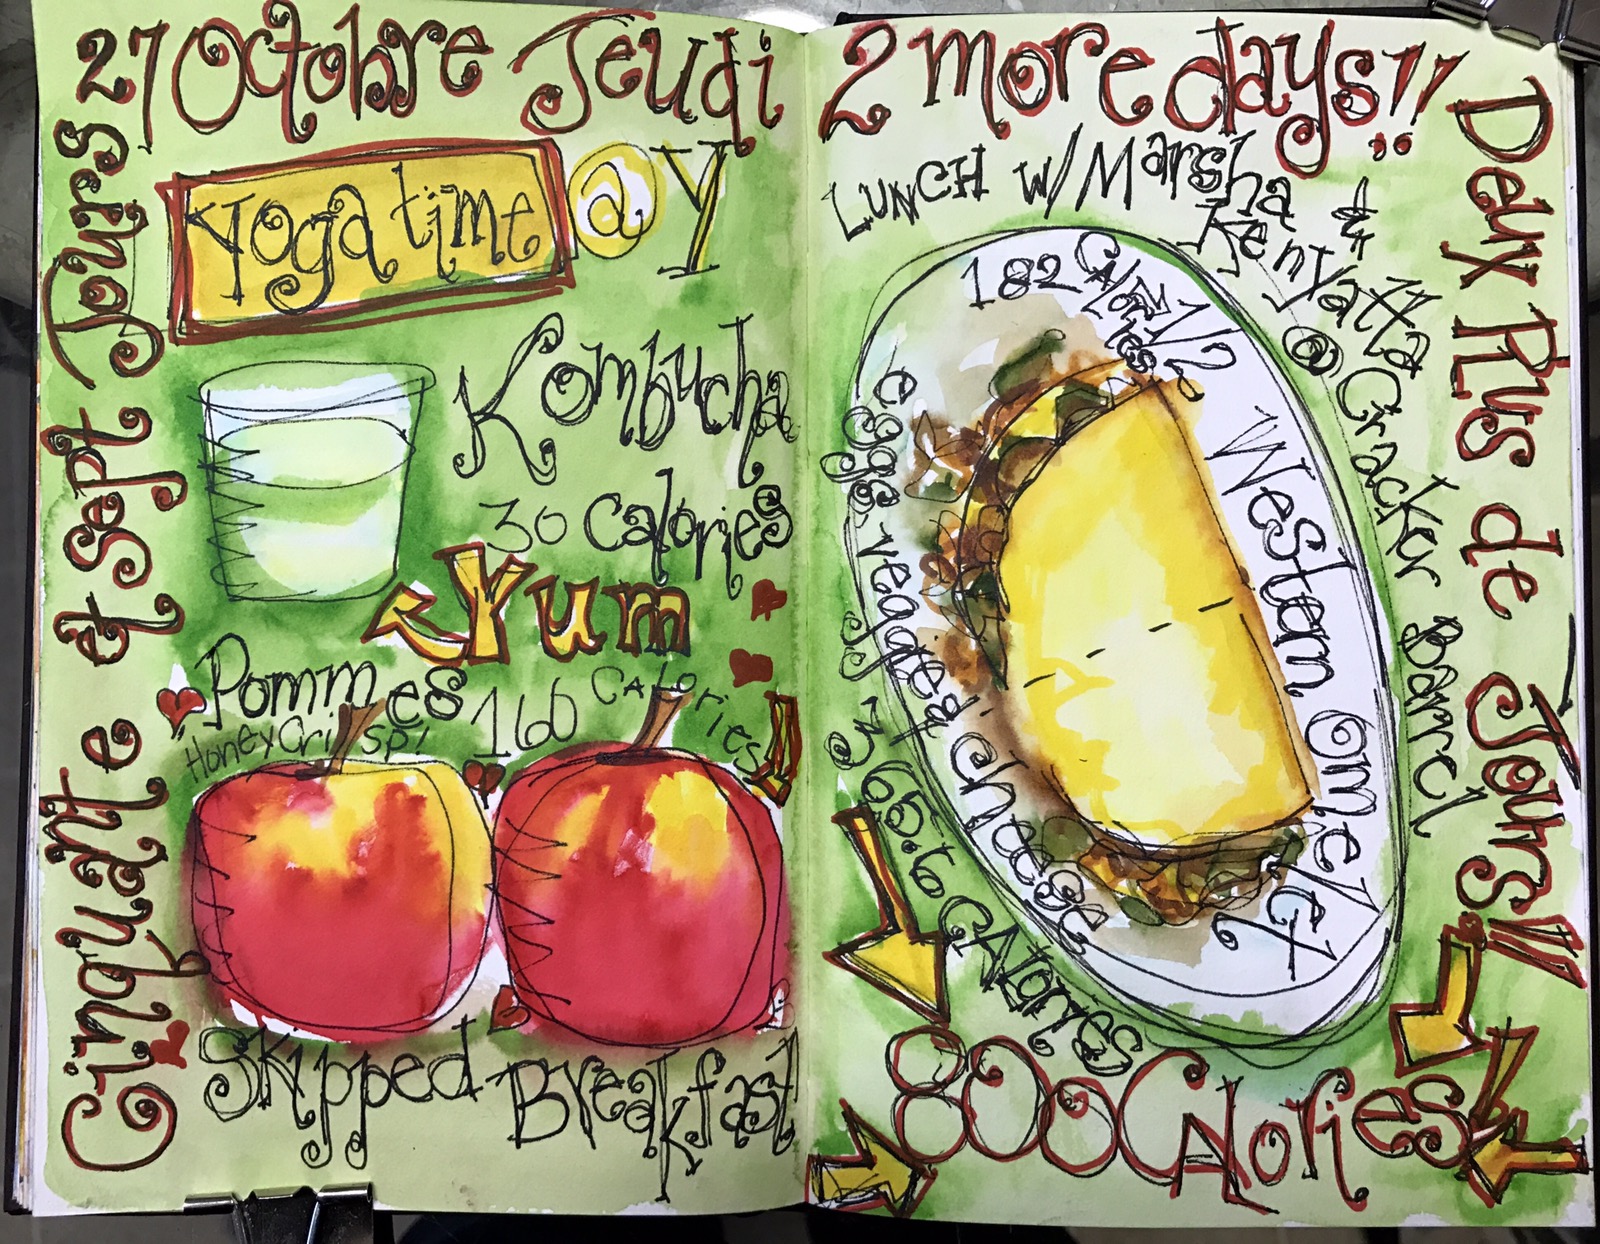 27 Octobre Jeudi
Cinquante et sept Jours
Yoga time @ Y
Kombucha
30 Calories
Yum
Pommes 160 Calories
HoneyCrisp!
Skipped Breakfast
2 more days!!
Deux Plus de Jours!!
LUNCH w/ Marsha & Kenyatta @ Cracker Barrel
182 Calories 1/2
Western Omelet
eggs veggies meat cheese
365.6 Calories
800 Calories